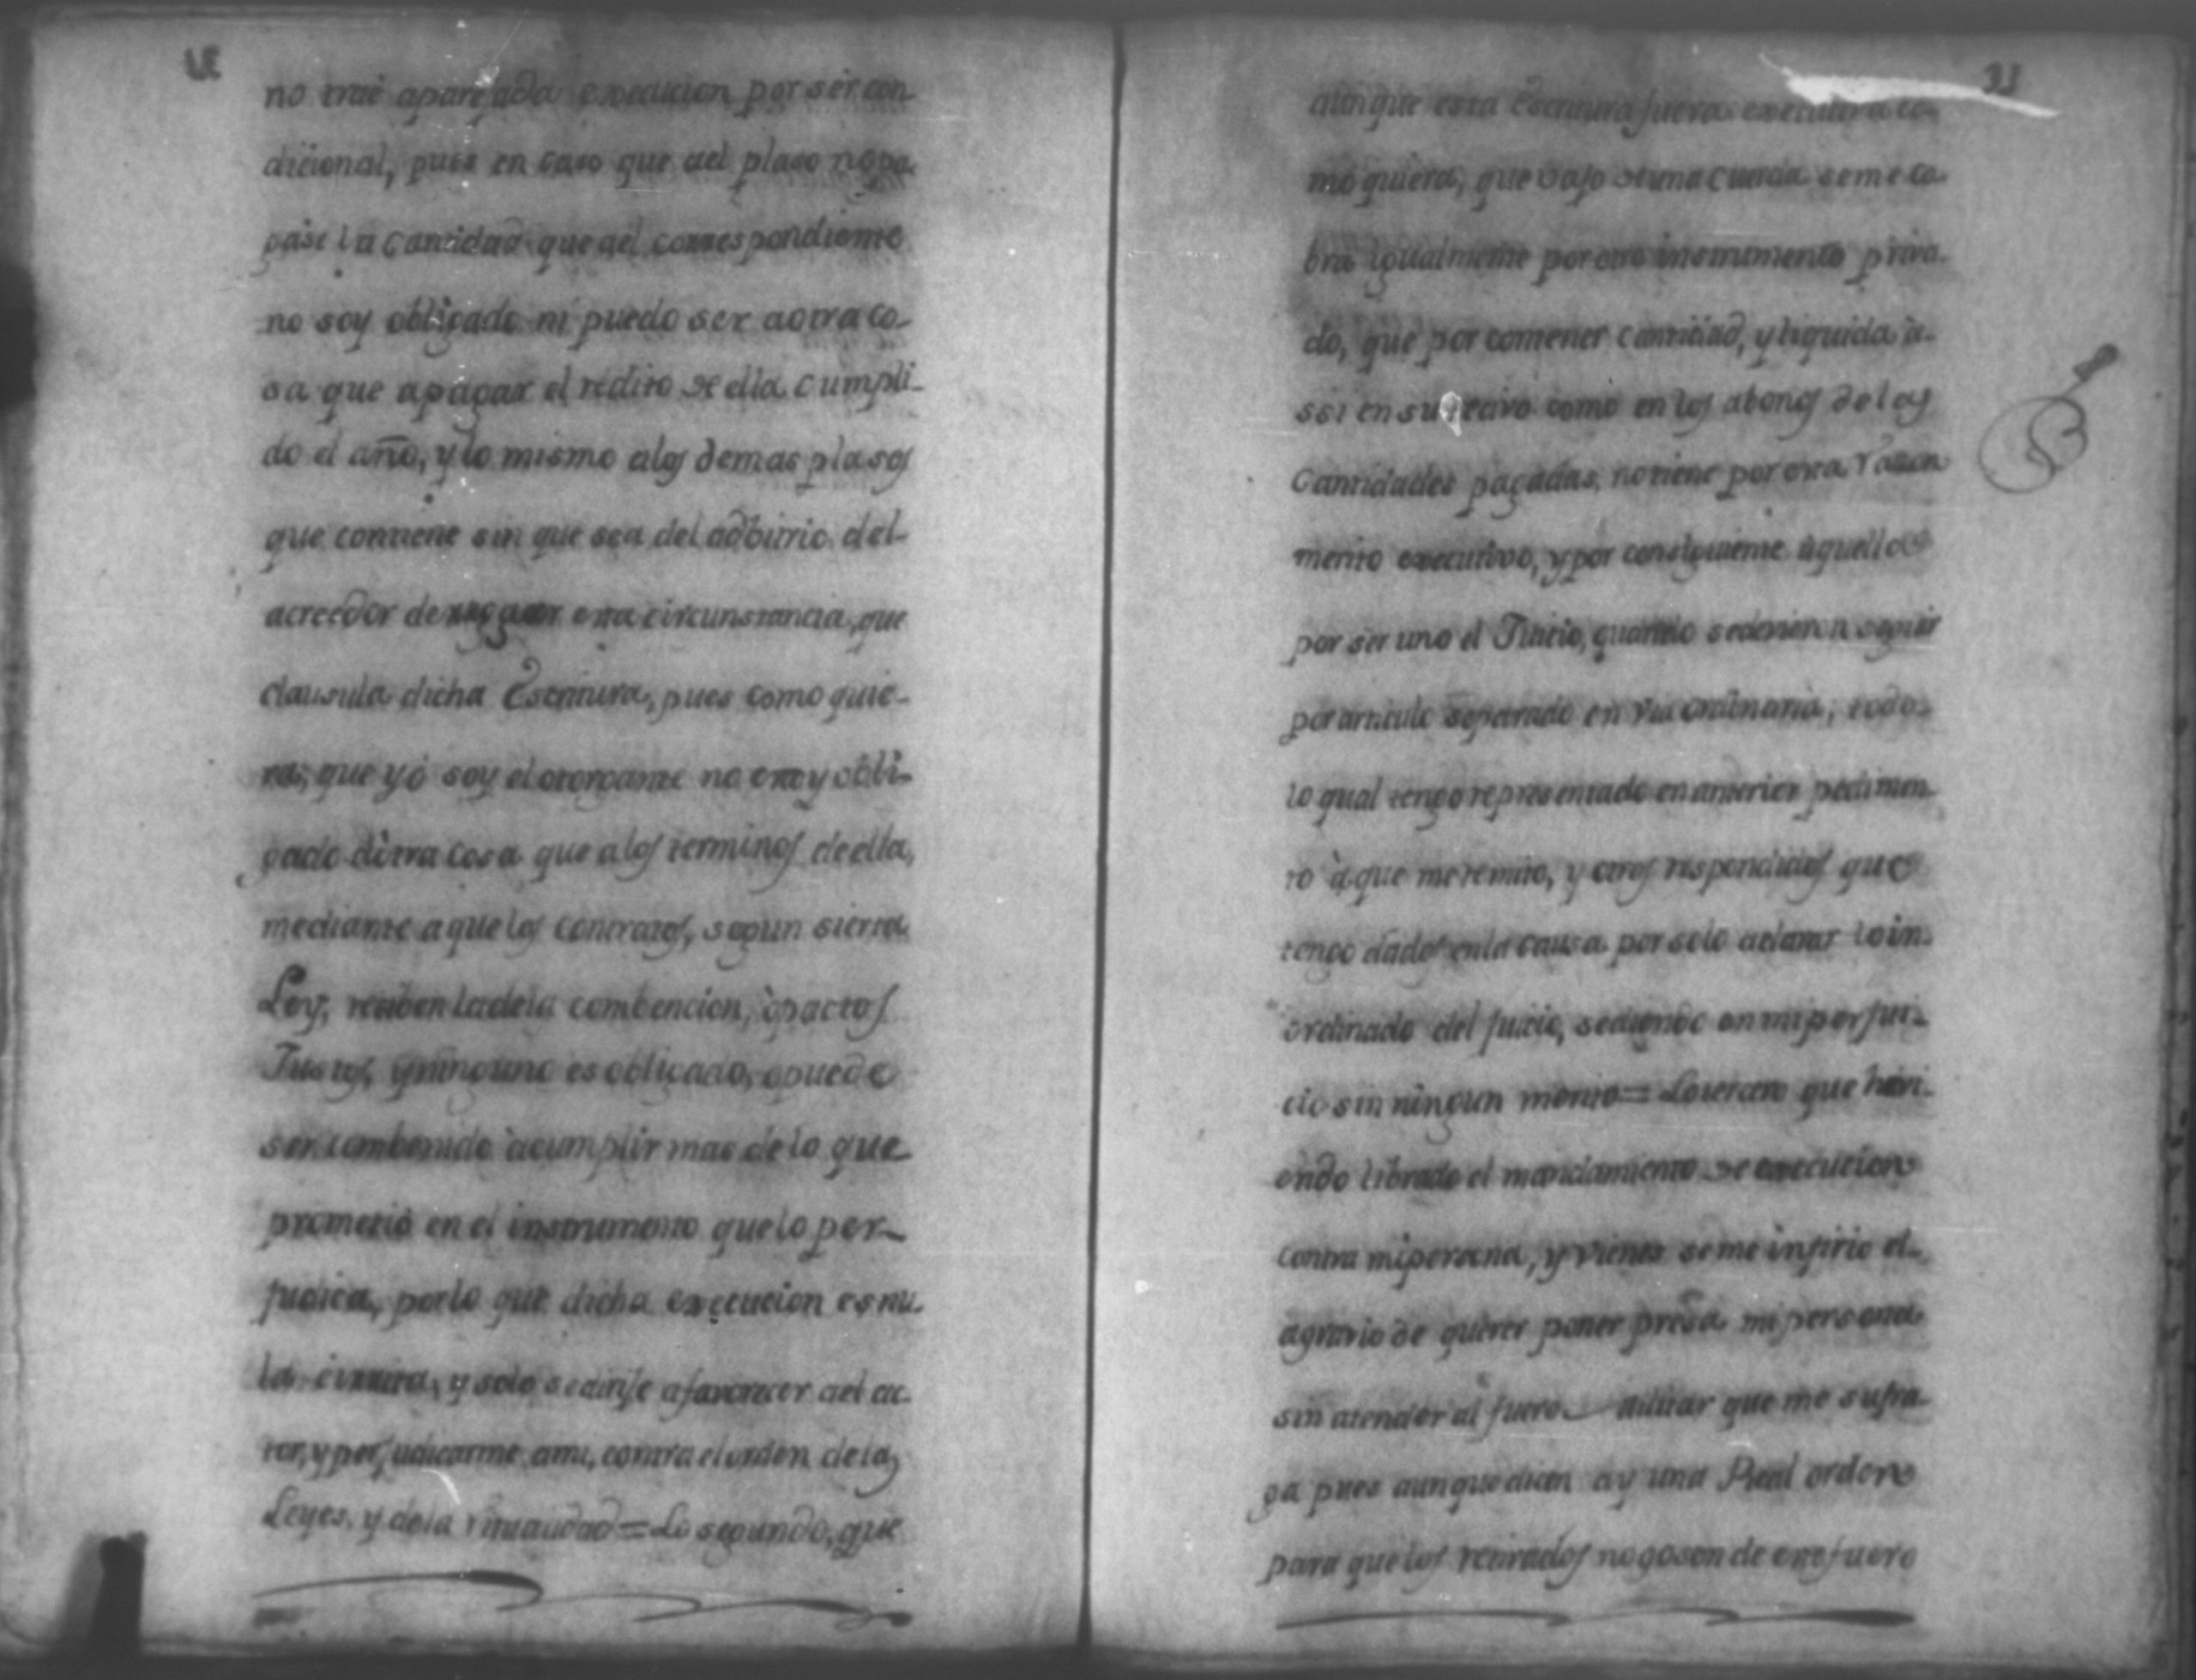 no trae aparejada execucion por ser con-
dicional, pues en caso que ael plaso no pa-
gase la cantidad que ael correspondiente
no soy obligado ni puedo ser aotra co-
sa que apagar el redito de ella cumpli-
do el año, y lo mismo alos demas plasos
que contiene sin que sea del adbitrio del
acreedor de esta circunstancia, que
clausula dicha Escritura, pues como quie-
ra, que yó soy el otorgante no estoy obli-
gado aotra cosa que alos terminos de ella,
mediante a que los contratos, segun sierta
Ley, reciben la de la combencion, ò pactos
Justos, y ninguno es obligado, o puede
ser combenido àcumplir mas de lo que
prometió en el instrumento que lo per-
judica, por lo que dicha execucion es nu-
la y solo se dirije afavorecer ael ac-
tor, y perjudicarme ami, contra el orden de las
Leyes, y de la ritualidad = Lo segundo, que
31
aunque esta Escritura fuera executiva co-
mo quiera, que vajo de una cuerda se me co-
bra igualmente por otro instrumento priva-
do, que por contener cantidad, y liquida a-
ssi en su recivo como en los abonos de las
Cantidades pagadas, no tiene por otra rason
merito executivo, y por consiguiente aquellos
por ser uno el Juicio, quando se devieron seguir
por articulo separado en via ordinaria; todo
lo qual tengo representado en anterior pedimen-
to àque me remito, y otros respondidos que
tengo dados en la causa por solo aclarar lo in-
ordinado del juicio, sediendo en mi perjui-
cio sin ningun merito = Lo tercero que havi-
endo librado el mandamiento de execucion
contra mi persona, y vienes se me infirio el
agravio de querer poner presa mi persona
sin atender al fuero militar que me sufra-
ga pues aunque dicen ay una Real orden
para que los retirados no gosen de este fuero